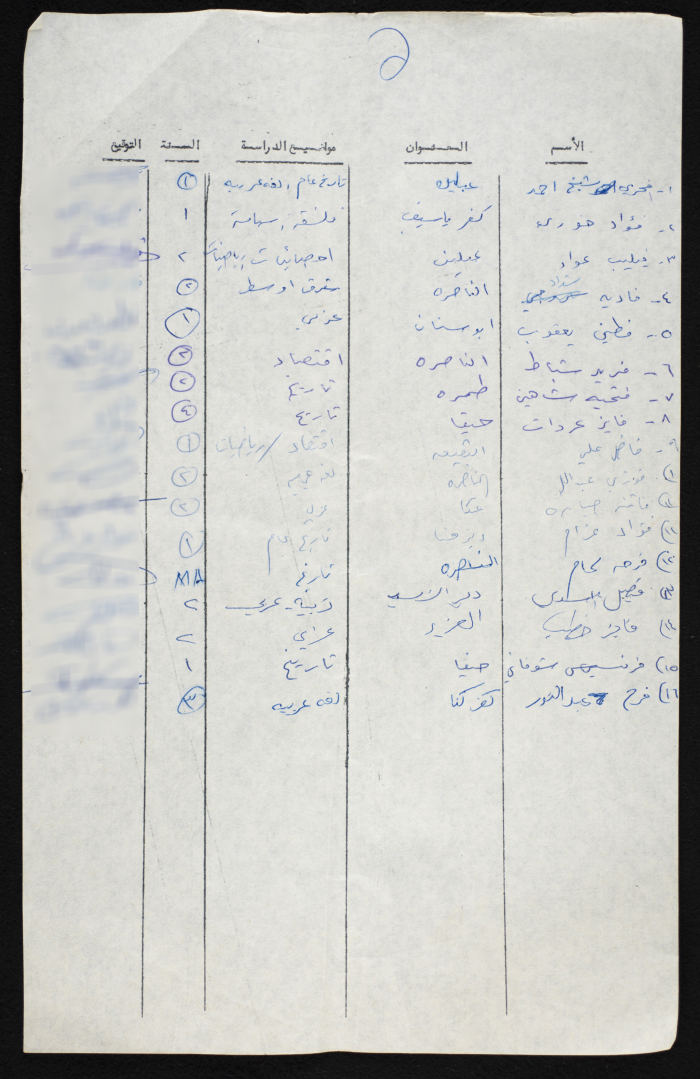 الأسم العنوان مواضيع الدراسة السنة التوقيع
١- فخري شيخ احمد عبلين تاريخ عام، لغه عربيه ١
٢- فؤاد خوري كفر ياسيف فلسفة، سياسة ١
٣- فيليب عواد عبلين احصائيات رياضيات ٢
٤- فاديه الناصره شرق اوسط ٢
٥- فطين يعقوب ابو سنان عربي ١
٦- فريد شباط الناصره اقتصاد ٣
٧- فتحيه شاهين طمره تاريخ ٢
٨- فايز عردات حيفا تاريخ ٤
٩- فاضل علي البقيعه اقتصاد / رياضيات ١
فوزي عبدالله الناصره لغه عربيه ٢
فاتنه جباره عكا عربي ٢
١١) فؤاد عزام دير حنا تاريخ عام ١
١٢) فرحه لحام الناصره تاريخ MA
١٣) فيصل دير الاسد تربية - عربي ٢
١٤) فايز خطيب العزير عربي ٢
١٥) فرنسيس ستوفاني حيفا تاريخ ١
١٦) فرح عبدالنور كفر كنا لغه عربيه ٣